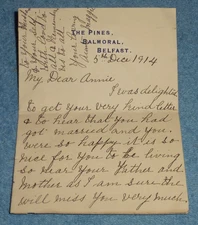 THE PINES,
BALMORAL,
BELFAST.
5th Dec 1914
My Dear Annie
I was delighted
to get your very kind letter
& to hear that you had
got married and you
were so happy it is so
nice for you to be living
so near your Father and
Mother as I am sure they
will miss you very much.